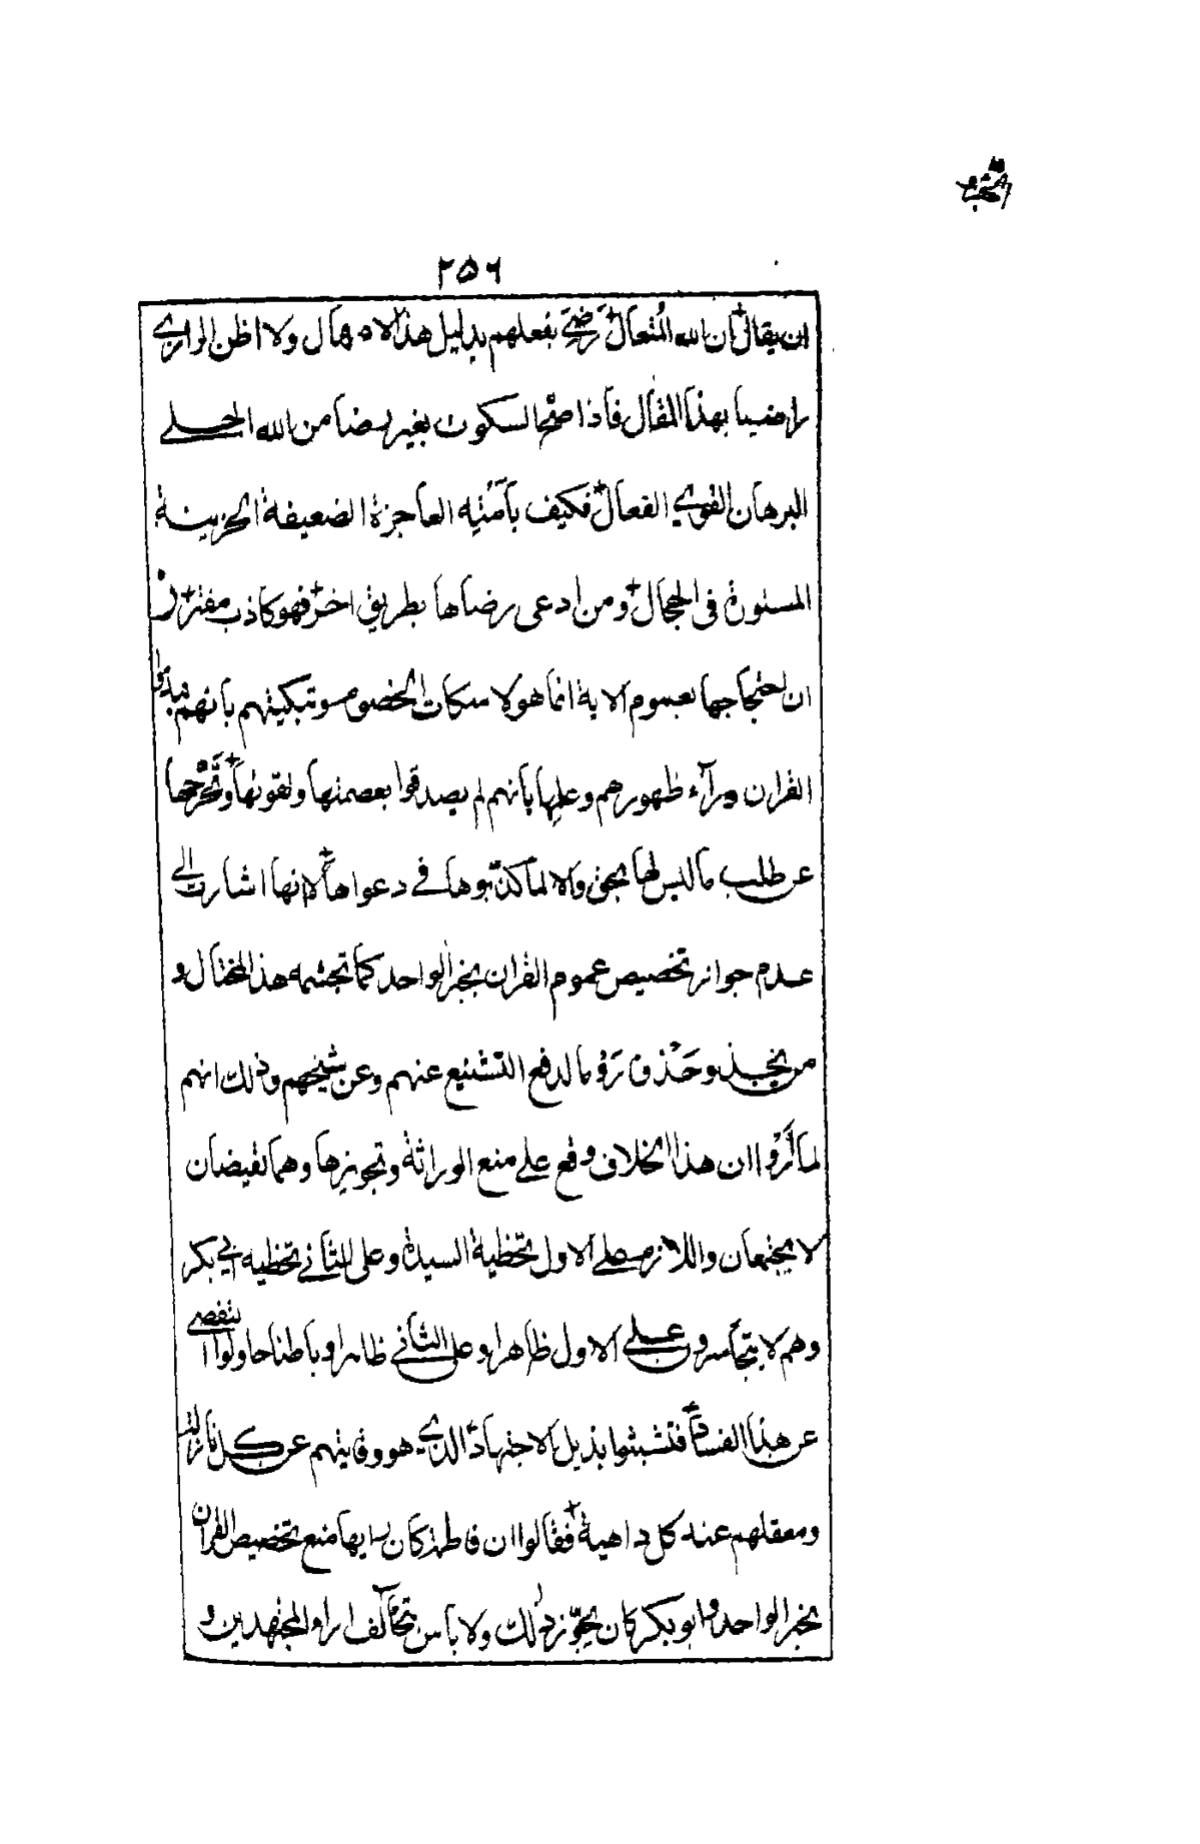 ٢٥٦
ان يقال ان الله المتعال رضي بفعلهم بدليل هذا الامهال ولا اظن الرازي
راضيا بهذا المقال فاذا صح السكوت بغير رضا من الله الجلي
البرهان القوي الفعال فكيف بامته العاجزة الضعيفة الحزينة
المستورة في الحجال ومن ادعى رضاها بطريق اخر فهو كاذب مفتر
ان احتجاجها بعموم الاية انما هو لاسكات الخصوم وتبكيتهم بانهم نبذوا
القران وراء ظهورهم وعليها بانهم لم يصدقوا بعصمتها وتقوىها وتحرجها
عن طلب ما ليس لها بحق والا لما كذبوها في دعواها لا انها اشارت الى
عدم جواز تخصيص عموم القران بخبر الواحد كما تجشمه هذا المختال و
من يحذو حذوه روما لدفع التشنيع عنهم وعن شيخهم وذلك انهم
لما راوا ان هذا الخلاف وقع على منع الوراثة وتجويزها وهما نقيضان
لا يجتمعان واللازم على الاول تخطية السيدة وعلى الثاني تخطيه ابي بكر
وهم لا يتجاسرون على الاول ظاهرا وعلى الثاني ظاهرا وباطنا حاولوا التفصي
عن هذا الفساد فتشبثوا بذيل الاجتهاد الذي هو وقايتهم عن كل نازلة
ومعقلهم عند كل داهية فقالوا ان فاطمة كان رايها منع تخصيص القران
بخبر الواحد وابو بكر كان يجوز ذلك ولا باس بتخالف اراء المجتهدين و